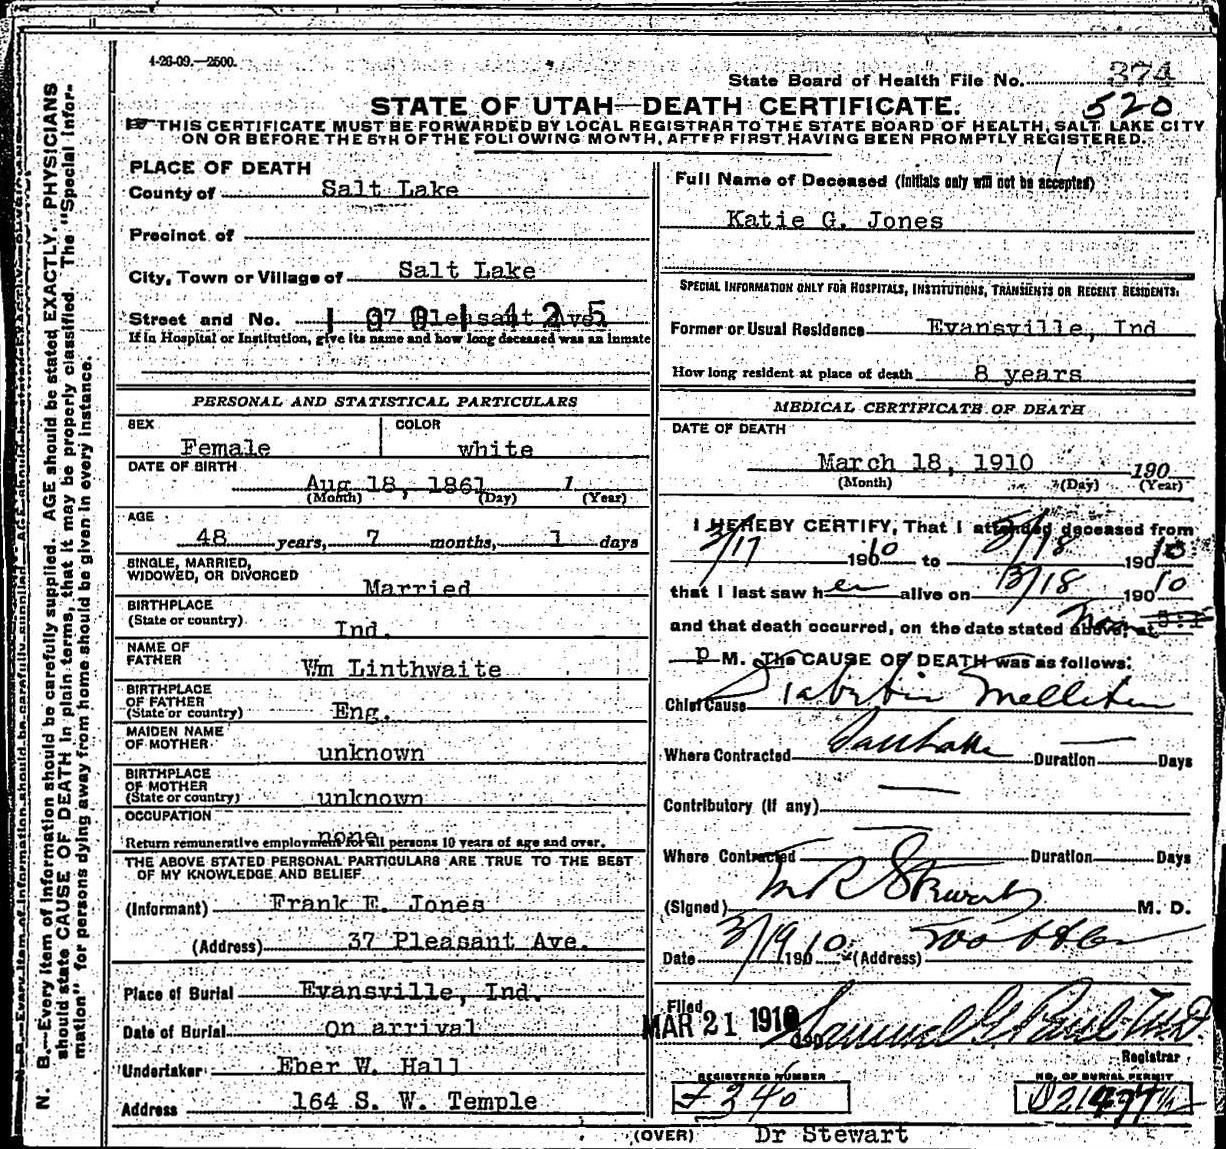 4-26-09.—2500.
State Board of Health File No. 374
STATE OF UTAH—DEATH CERTIFICATE. 520
THIS CERTIFICATE MUST BE FORWARDED BY LOCAL REGISTRAR TO THE STATE BOARD OF HEALTH, SALT LAKE CITY
ON OR BEFORE THE 5TH OF THE FOLLOWING MONTH, AFTER FIRST HAVING BEEN PROMPTLY REGISTERED.
PLACE OF DEATH
County of Salt Lake
Precinct of
City, Town or Village of Salt Lake
Street and No. 37 Pleasant Ave.
If in Hospital or Institution, give its name and how long deceased was an inmate
PERSONAL AND STATISTICAL PARTICULARS
SEX Female COLOR white
DATE OF BIRTH
Aug 18, 1861 1
(Month) (Day) (Year)
AGE
48 years, 7 months, 1 days
SINGLE, MARRIED,
WIDOWED, OR DIVORCED Married
BIRTHPLACE
(State or country) Ind.
NAME OF
FATHER Wm Linthwaite
BIRTHPLACE
OF FATHER
(State or country) Eng.
MAIDEN NAME
OF MOTHER unknown
BIRTHPLACE
OF MOTHER
(State or country) unknown
OCCUPATION none
Return remunerative employment for all persons 10 years of age and over.
THE ABOVE STATED PERSONAL PARTICULARS ARE TRUE TO THE BEST
OF MY KNOWLEDGE AND BELIEF.
(Informant) Frank E. Jones
(Address) 37 Pleasant Ave.
Place of Burial Evansville, Ind.
Date of Burial On arrival
Undertaker Eber W. Hall
Address 164 S. W. Temple
Full Name of Deceased (Initials only will not be accepted)
Katie G. Jones
SPECIAL INFORMATION ONLY FOR HOSPITALS, INSTITUTIONS, TRANSIENTS OR RECENT RESIDENTS.
Former or Usual Residence Evansville, Ind
How long resident at place of death 8 years
MEDICAL CERTIFICATE OF DEATH
DATE OF DEATH
March 18, 1910 190
(Month) (Day) (Year)
I HEREBY CERTIFY, That I attended deceased from
3/17 190 10 to 3/18 190 10
that I last saw her alive on 3/18 190 10
and that death occurred, on the date stated above, at
P M. The CAUSE OF DEATH was as follows:
Chief Cause Diabetis Mellitus
Where Contracted Salt Lake Duration Days
Contributory (If any)
Where Contracted Duration Days
(Signed) Stewart M. D.
Date 3/19 190 10 (Address)
Filed
MAR 21 1910 190 Samuel G. Paul M.D.
Registrar
REGISTERED NUMBER
340
NO. OF BURIAL PERMIT
(OVER) Dr Stewart
N. B.—Every item of information should be carefully supplied. AGE should be stated EXACTLY. PHYSICIANS
should state CAUSE OF DEATH in plain terms, that it may be properly classified. The "Special Infor-
mation" for persons dying away from home should be given in every instance.